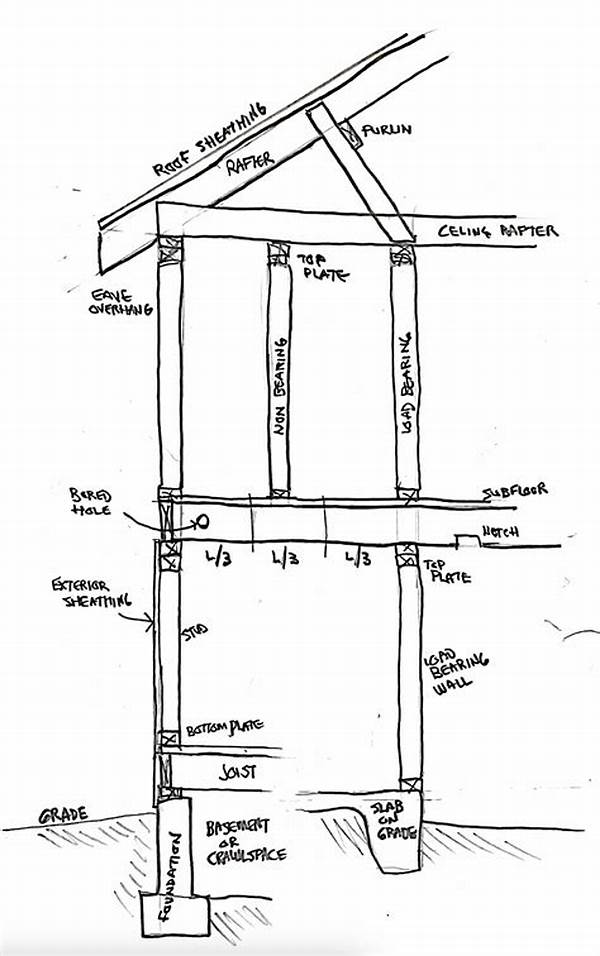 ROOF SHEATHING
RAFTER
PURLIN
CELING RAFTER
TOP
PLATE
EAVE
OVERHANG
NON BEARING
LOAD BEARING
BORED
HOLE
SUBFLOOR
NOTCH
L/3
L/3
L/3
TOP
PLATE
EXTERIOR
SHEATHING
STUD
LOAD
BEARING
WALL
BOTTOM PLATE
JOIST
GRADE
SLAB
ON
GRADE
BASEMENT
OR
CRAWLSPACE
FOUNDATION